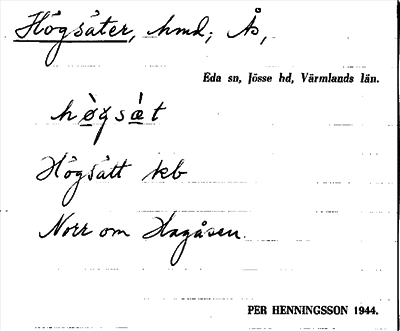 Högsäter, hmd; Ås,
Eda sn, Jösse hd, Värmlands län.
hø̀gsæ̀t
Högsätt kb
Norr om Hagåsen.
PER HENNINGSSON 1944.